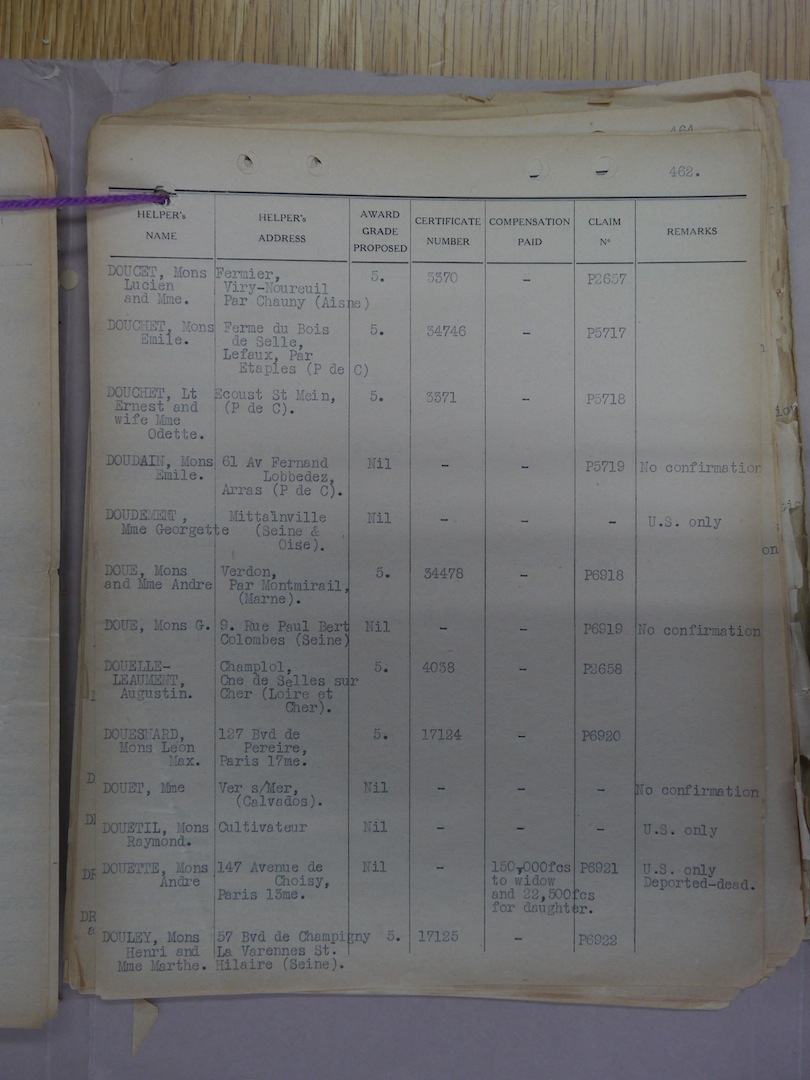 462.
HELPER's NAME HELPER's ADDRESS AWARD GRADE PROPOSED CERTIFICATE NUMBER COMPENSATION PAID CLAIM Nº REMARKS
DOUCET, Mons Fermier, 5. 3370 - P2657
Lucien Viry-Noureuil
and Mme. Par Chauny (Aisne)
DOUCHET, Mons Ferme du Bois 5. 34746 - P5717
Emile. de Selle,
Lefaux, Par
Etaples (P de C)
DOUCHET, Lt Ecoust St Mein, 5. 3371 - P5718
Ernest and (P de C).
wife Mme
Odette.
DOUDAIN, Mons 61 Av Fernand Nil - - P5719 No confirmation
Emile. Lobbedez,
Arras (P de C).
DOUDEMENT, Mittainville Nil - - - U.S. only
Mme Georgette (Seine &
Oise).
DOUE, Mons Verdon, 5. 34478 - P6918
and Mme Andre Par Montmirail,
(Marne).
DOUE, Mons G. 9. Rue Paul Bert Nil - - P6919 No confirmation
Colombes (Seine)
DOUELLE- Champlol, 5. 4038 - P2658
LEAUMENT, Cne de Selles sur
Augustin. Cher (Loire et
Cher).
DOUESNARD, 127 Bvd de 5. 17124 - P6920
Mons Leon Pereire,
Max. Paris 17me.
DOUET, Mme Ver s/Mer, Nil - - - No confirmation
(Calvados).
DOUETIL, Mons Cultivateur Nil - - - U.S. only
Raymond.
DOUETTE, Mons 147 Avenue de Nil - 150,000fcs P6921 U.S. only
Andre Choisy, to widow Deported-dead.
Paris 13me. and 22,500fcs
for daughter.
DOULEY, Mons 57 Bvd de Champigny 5. 17125 - P6922
Henri and La Varennes St.
Mme Marthe. Hilaire (Seine).